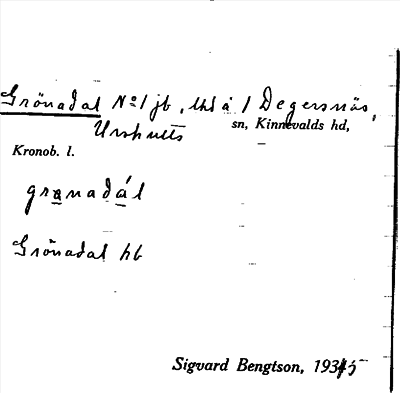 Grönadal No 1 jb, lhl å 1 Degersnäs,
Urshults sn, Kinnevalds hd,
Kronob. l.
granadál
Grönadal hb
Sigvard Bengtson, 1935